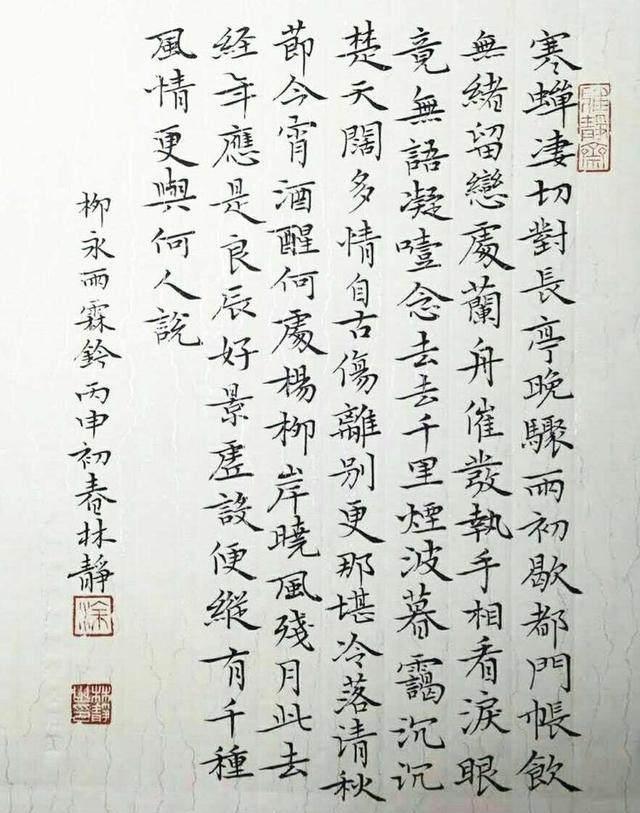 寒蟬淒切對長亭晚驟雨初歇都門帳飲
無緒留戀處蘭舟催發執手相看淚眼
竟無語凝噎念去去千里煙波暮靄沉沉
楚天闊多情自古傷離別更那堪冷落清秋
節今宵酒醒何處楊柳岸曉風殘月此去
经年應是良辰好景虛設便縱有千種
風情更與何人說
柳永雨霖鈴丙申初春林靜
涂